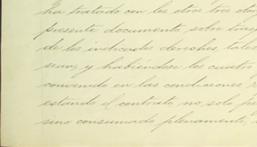 ha tratado con los otros tres otor
presente documento sobre tras
de los indicados derechos, tales
sean, y habiendose los cuatro
convenido en las condiciones
estando el contrato no solo
sino consumado plenamente,